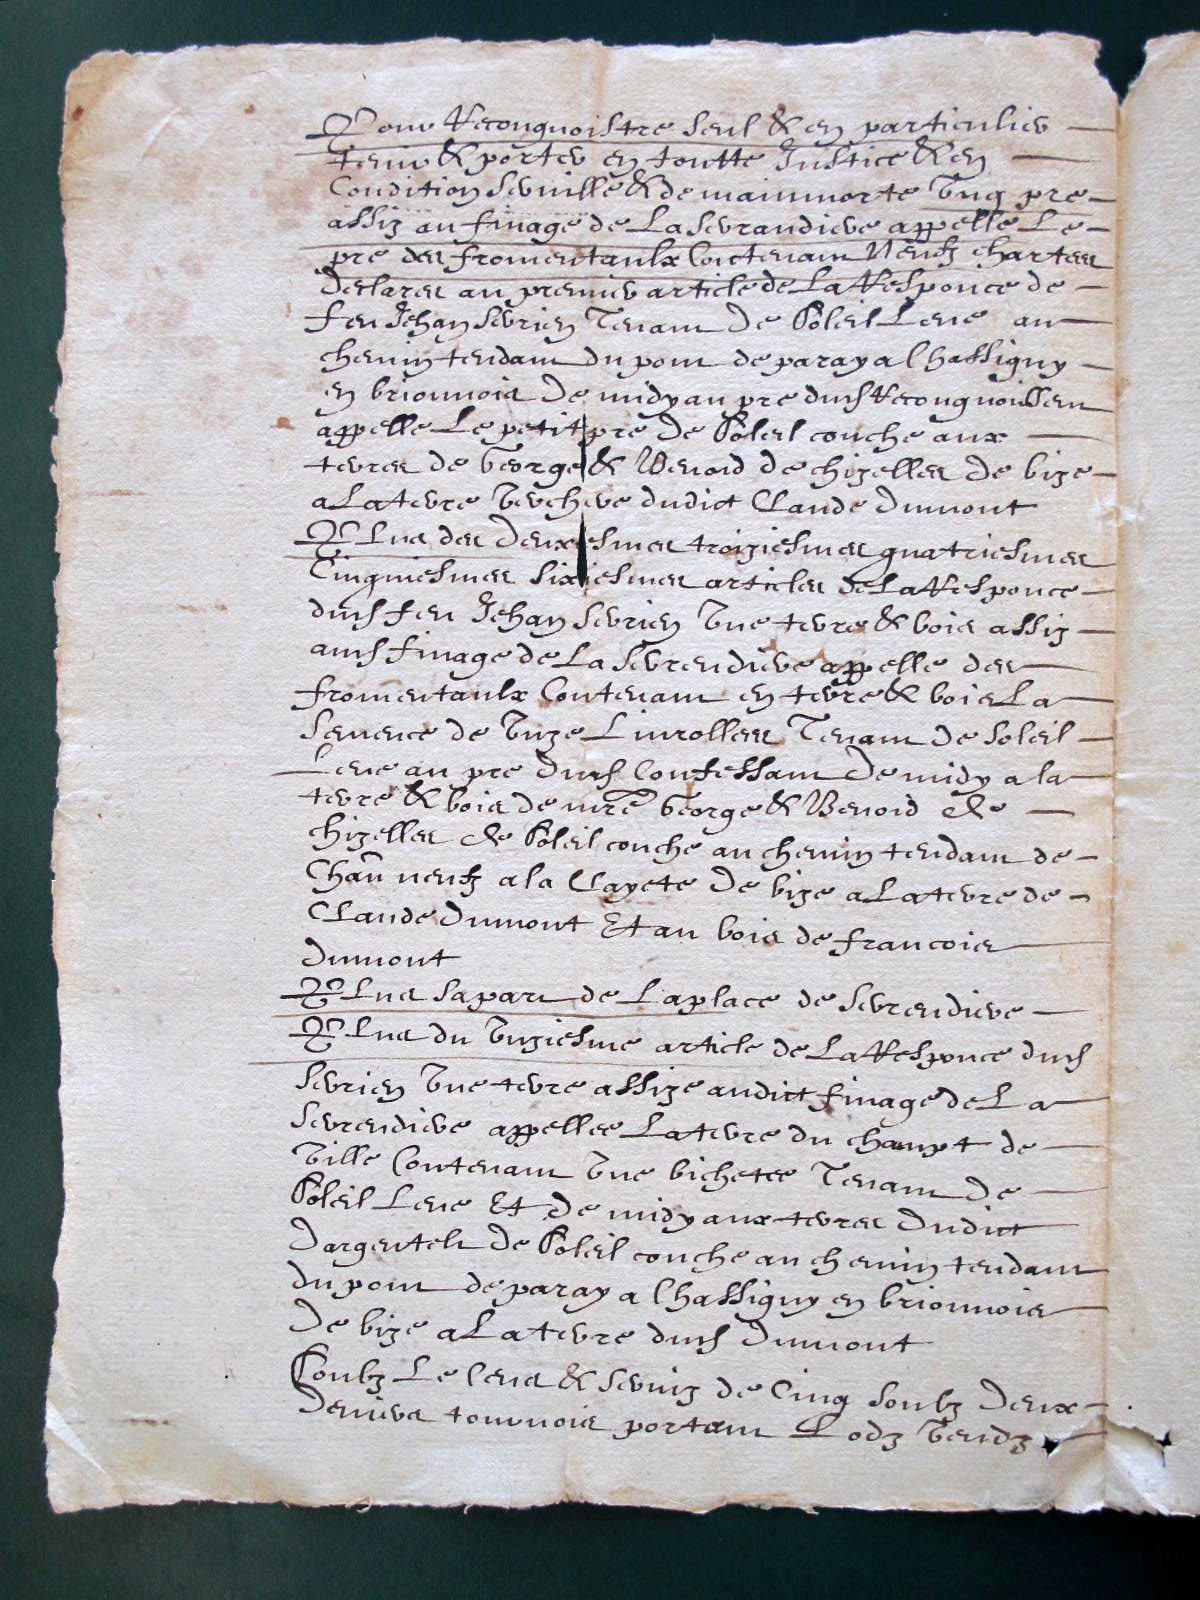 Pour Recongnoistre seul & en particulier
tenir & porter en toutte Justice & en
Condition serville & de mainmorte Ung pre
assiz au finage de La Servandiere appelle Le
pre des fromentaulx Contenant Neufz chartes
declares au premier article de La Responce de
feu Jehan Servien Tenant De Soleil Leve au
chemin tendant du pont de paray a Chassigny
en brionnois De midy au pre dud Recongnoissant
appelle Le petit pre De Soleil couche aux
terres de George & Benoid de chizelles De bize
a La terre Verchere dudict Claude Dumont
Plus des Deuxiesmes troiziesmes quatriesmes
Cinquiesmes sixiesmes articles de La Responce
dud feu Jehan Servien Une terre & bois assiz
aud finage de La Serrendiere appelle des
fromentaulx Contenant en terre & bois La
Semence de Unze Livrolles Tenant De Soleil
Leve au pre dud Confessant De midy a la
terre & bois de mre George & Benoid de
chizelles de Soleil couche au chemin tendant de
Chaũ neufz a la Clayete De bize a La terre de
Claude Dumont Et au bois de francois
Dumont
Plus sa part de La place de Serrendiere
Plus du Unziesme article de La Responce dud
Servien Une terre assize audict finage de La
Serrendiere appellee La terre du champt de
Ville Contenant Une bichetee Tenant De
Soleil Leve Et De midy aux terres Dudict
Dargentel De Soleil couche au chemin tendant
du pont de paray a Chassigny en brionnois
De bize a La terre dud Dumont
Soubz Le Cens & serviz de Cinq Soubz Deux
Deniers tournois portant Lodz Vendz